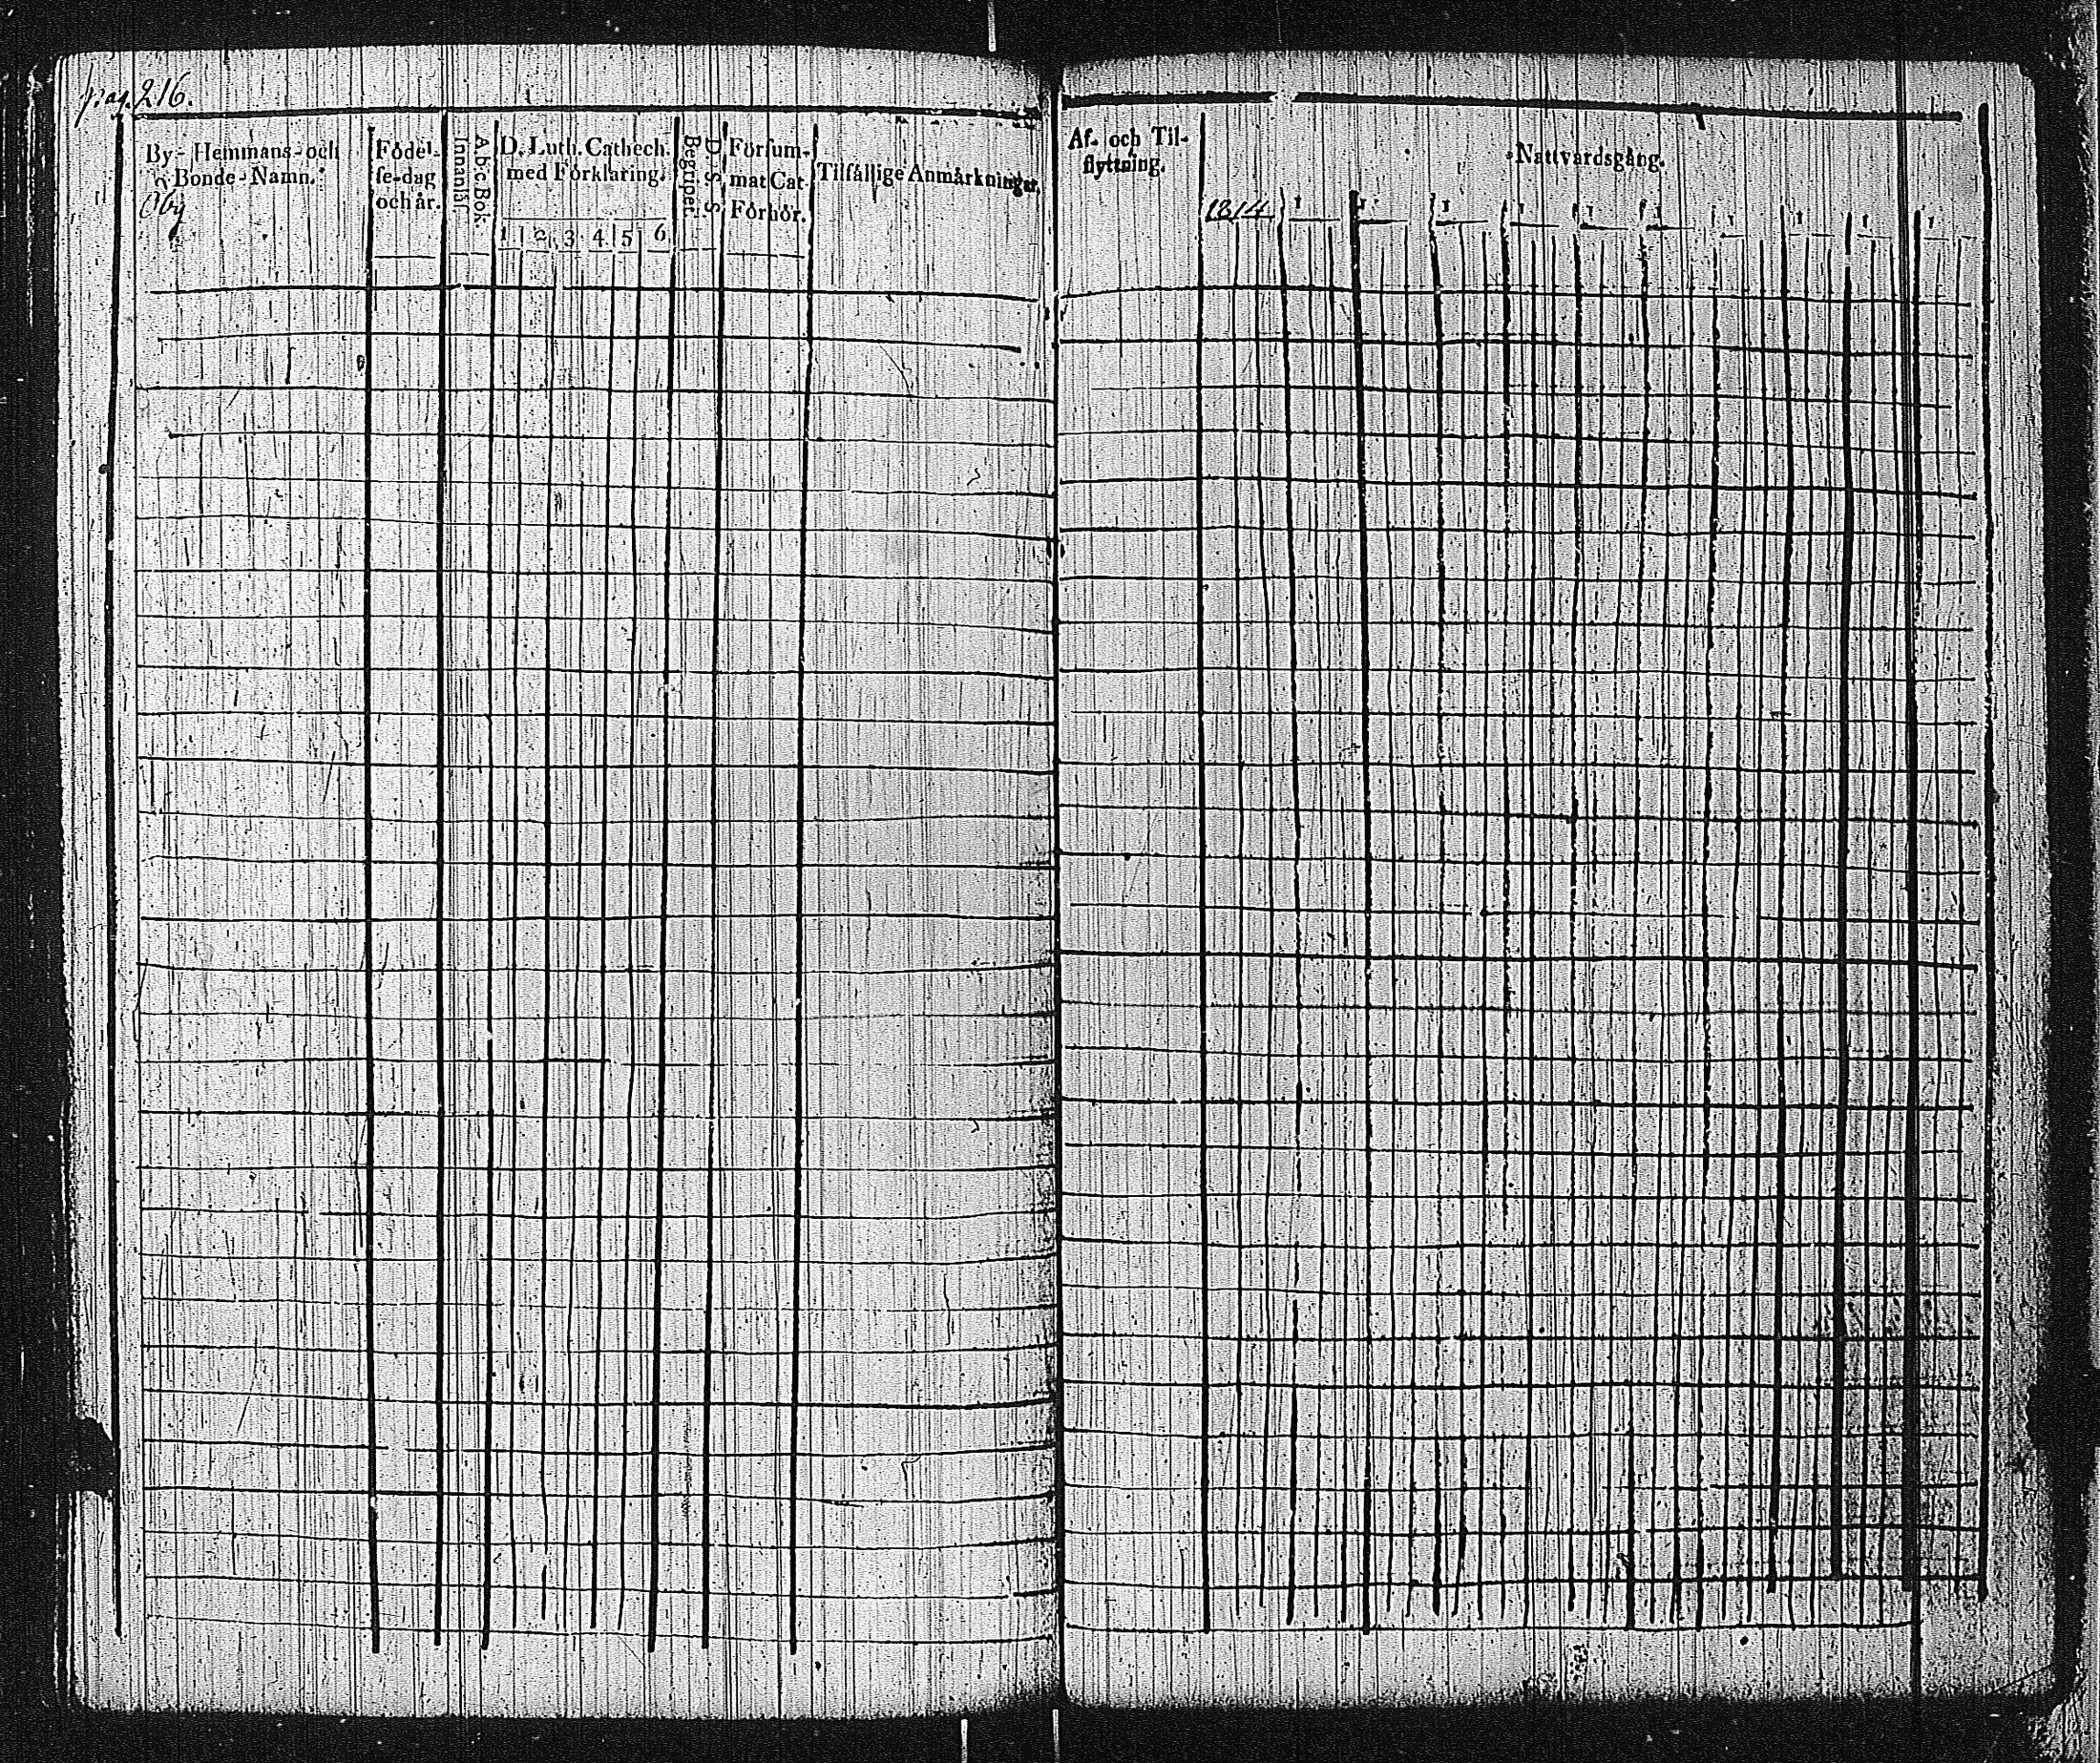 pag. 216.
By- Hemmans- och
Bonde-Namn.
Öby
Födel-
se-dag
och år.
A. b. c Bok.
Innanläs
D. Luth. Cathech.
med Förklaring.
1 2 3 4 5 6
D. S. S.
Begripet.
Försum-
mat Cat.
Förhör.
Tilfällige Anmärkningar.
Af- och Til-
flyttning.
Nattvardsgång.
1814 1 1 1 1 1 1 1 1 1 1